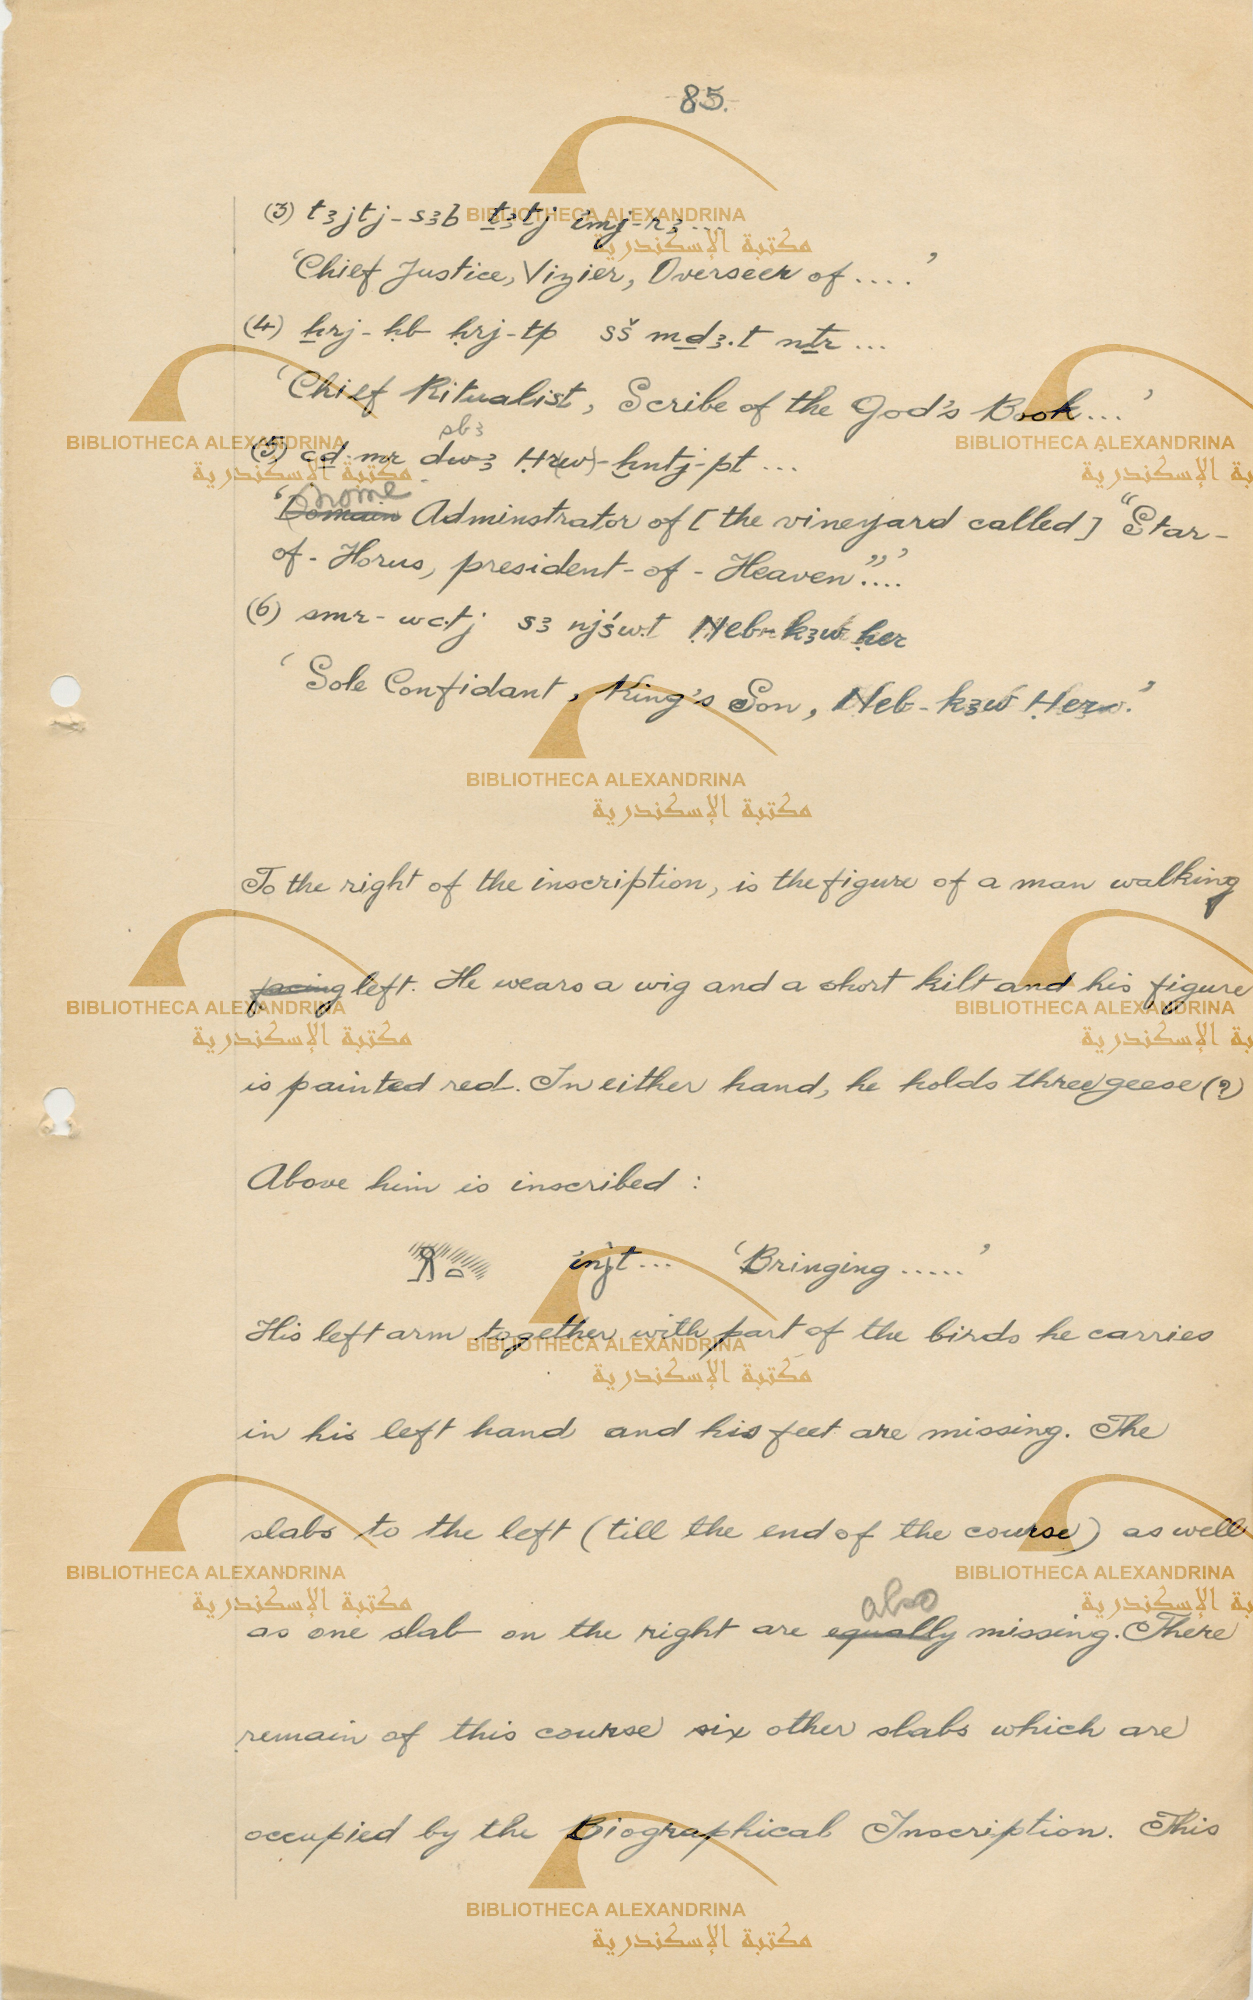 -85.-
(3) tꜣjtj-sꜣb ṯꜣtj imj-rꜣ ...
'Chief Justice, Vizier, Overseer of ....'
(4) ẖrj-ḥb ḥrj-tp sš mḏꜣ.t nṯr ...
'Chief Ritualist, Scribe of the God's Book...'
sbꜣ
(5) cḏ mr dwꜣ Ḥr(w)-ḫntj-pt ...
nome
'Domain Adminstrator of [the vineyard called] "Star-
of-Horus, president-of-Heaven"....'
(6) smr-wc.tj sꜣ njśwt Neb-kꜣw ḥer
'Sole Confidant, King's Son, Neb-kꜣw Ḥer.'
To the right of the inscription, is the figure of a man walking
facing left. He wears a wig and a short kilt and his figure
is painted red. In either hand, he holds three geese (?)
Above him is inscribed :
injt... 'Bringing .....'
His left arm together with part of the birds he carries
in his left hand and his feet are missing. The
slabs to the left (till the end of the course) as well
also
as one slab on the right are equally missing. There
remain of this course six other slabs which are
occupied by the Biographical Inscription. This
BIBLIOTHECA ALEXANDRINA
مكتبة الإسكندرية